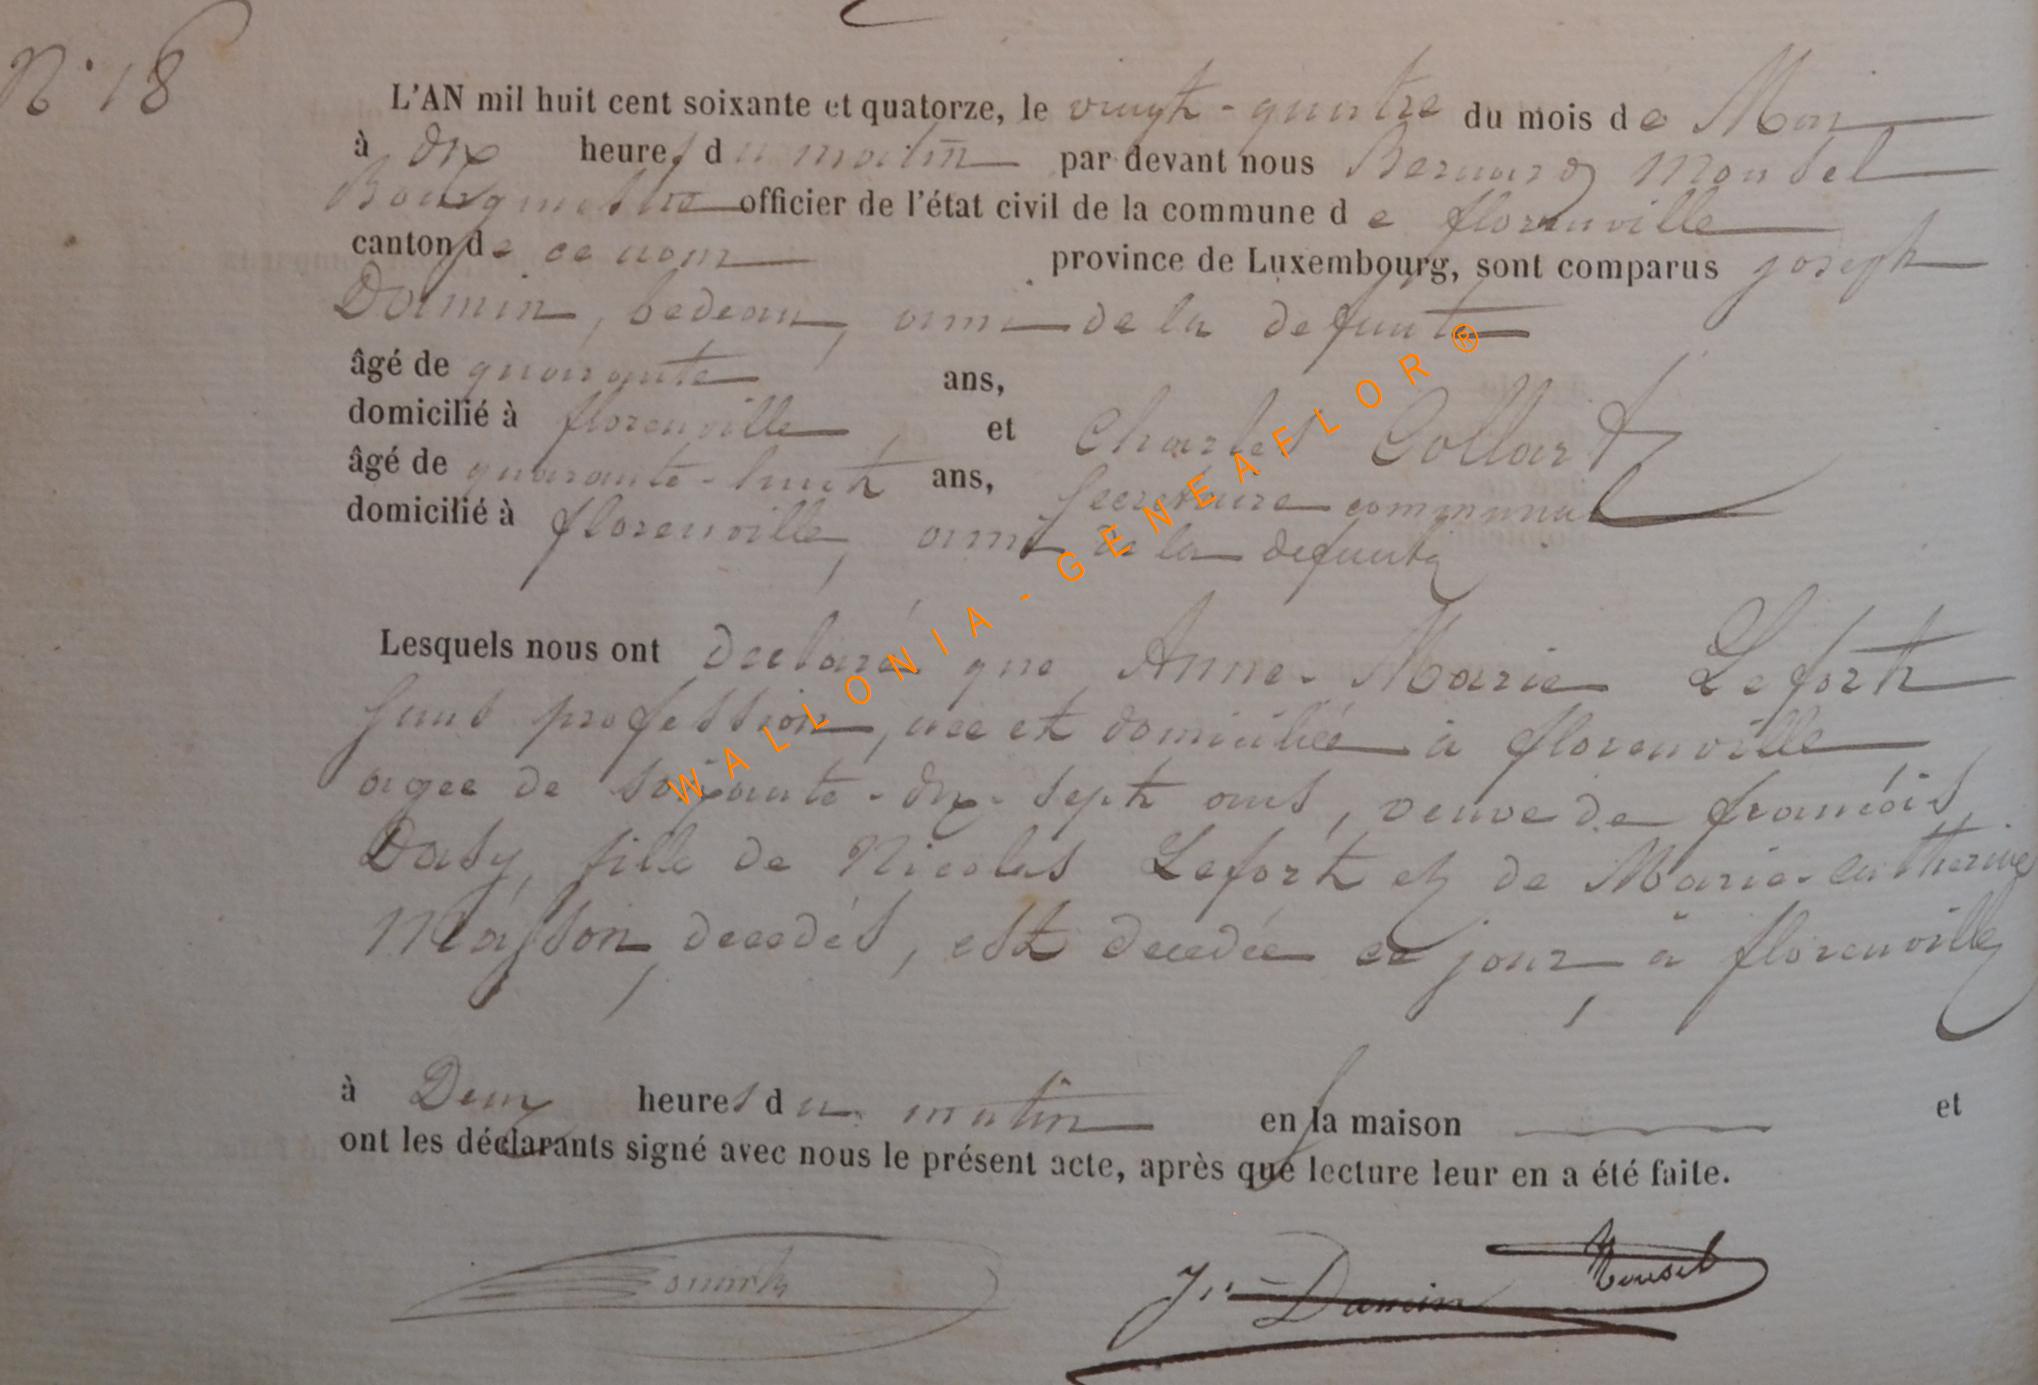 N° 18
L'AN mil huit cent soixante et quatorze, le vingt-quatre du mois de Mai
à dix heures du matin par devant nous Bernard Mousel
Bourgmestre officier de l'état civil de la commune de florenville
canton de ce nom province de Luxembourg, sont comparus joseph
Damin, bedeau, ami de la defunte
âgé de quarante ans,
domicilié à florenville, et Charles Collart
âgé de quarante-huit ans, Secretaire communal
domicilié à florenville, ami de la defunte
Lesquels nous ont declaré que Anne-Marie Lefort
sans profession, née et domiciliée à florenville
agee de soixante-dix-sept ans, veuve de francois
Dasy, fille de Nicolas Lefort et de Marie-Catherine
Masson, decedés, est decedée ce jour à florenville,
à Deux heures du matin en sa maison et
ont les déclarants signé avec nous le présent acte, après que lecture leur en a été faite.
Jh Damin Mousel
WALLONIA-GENEAFLOR®